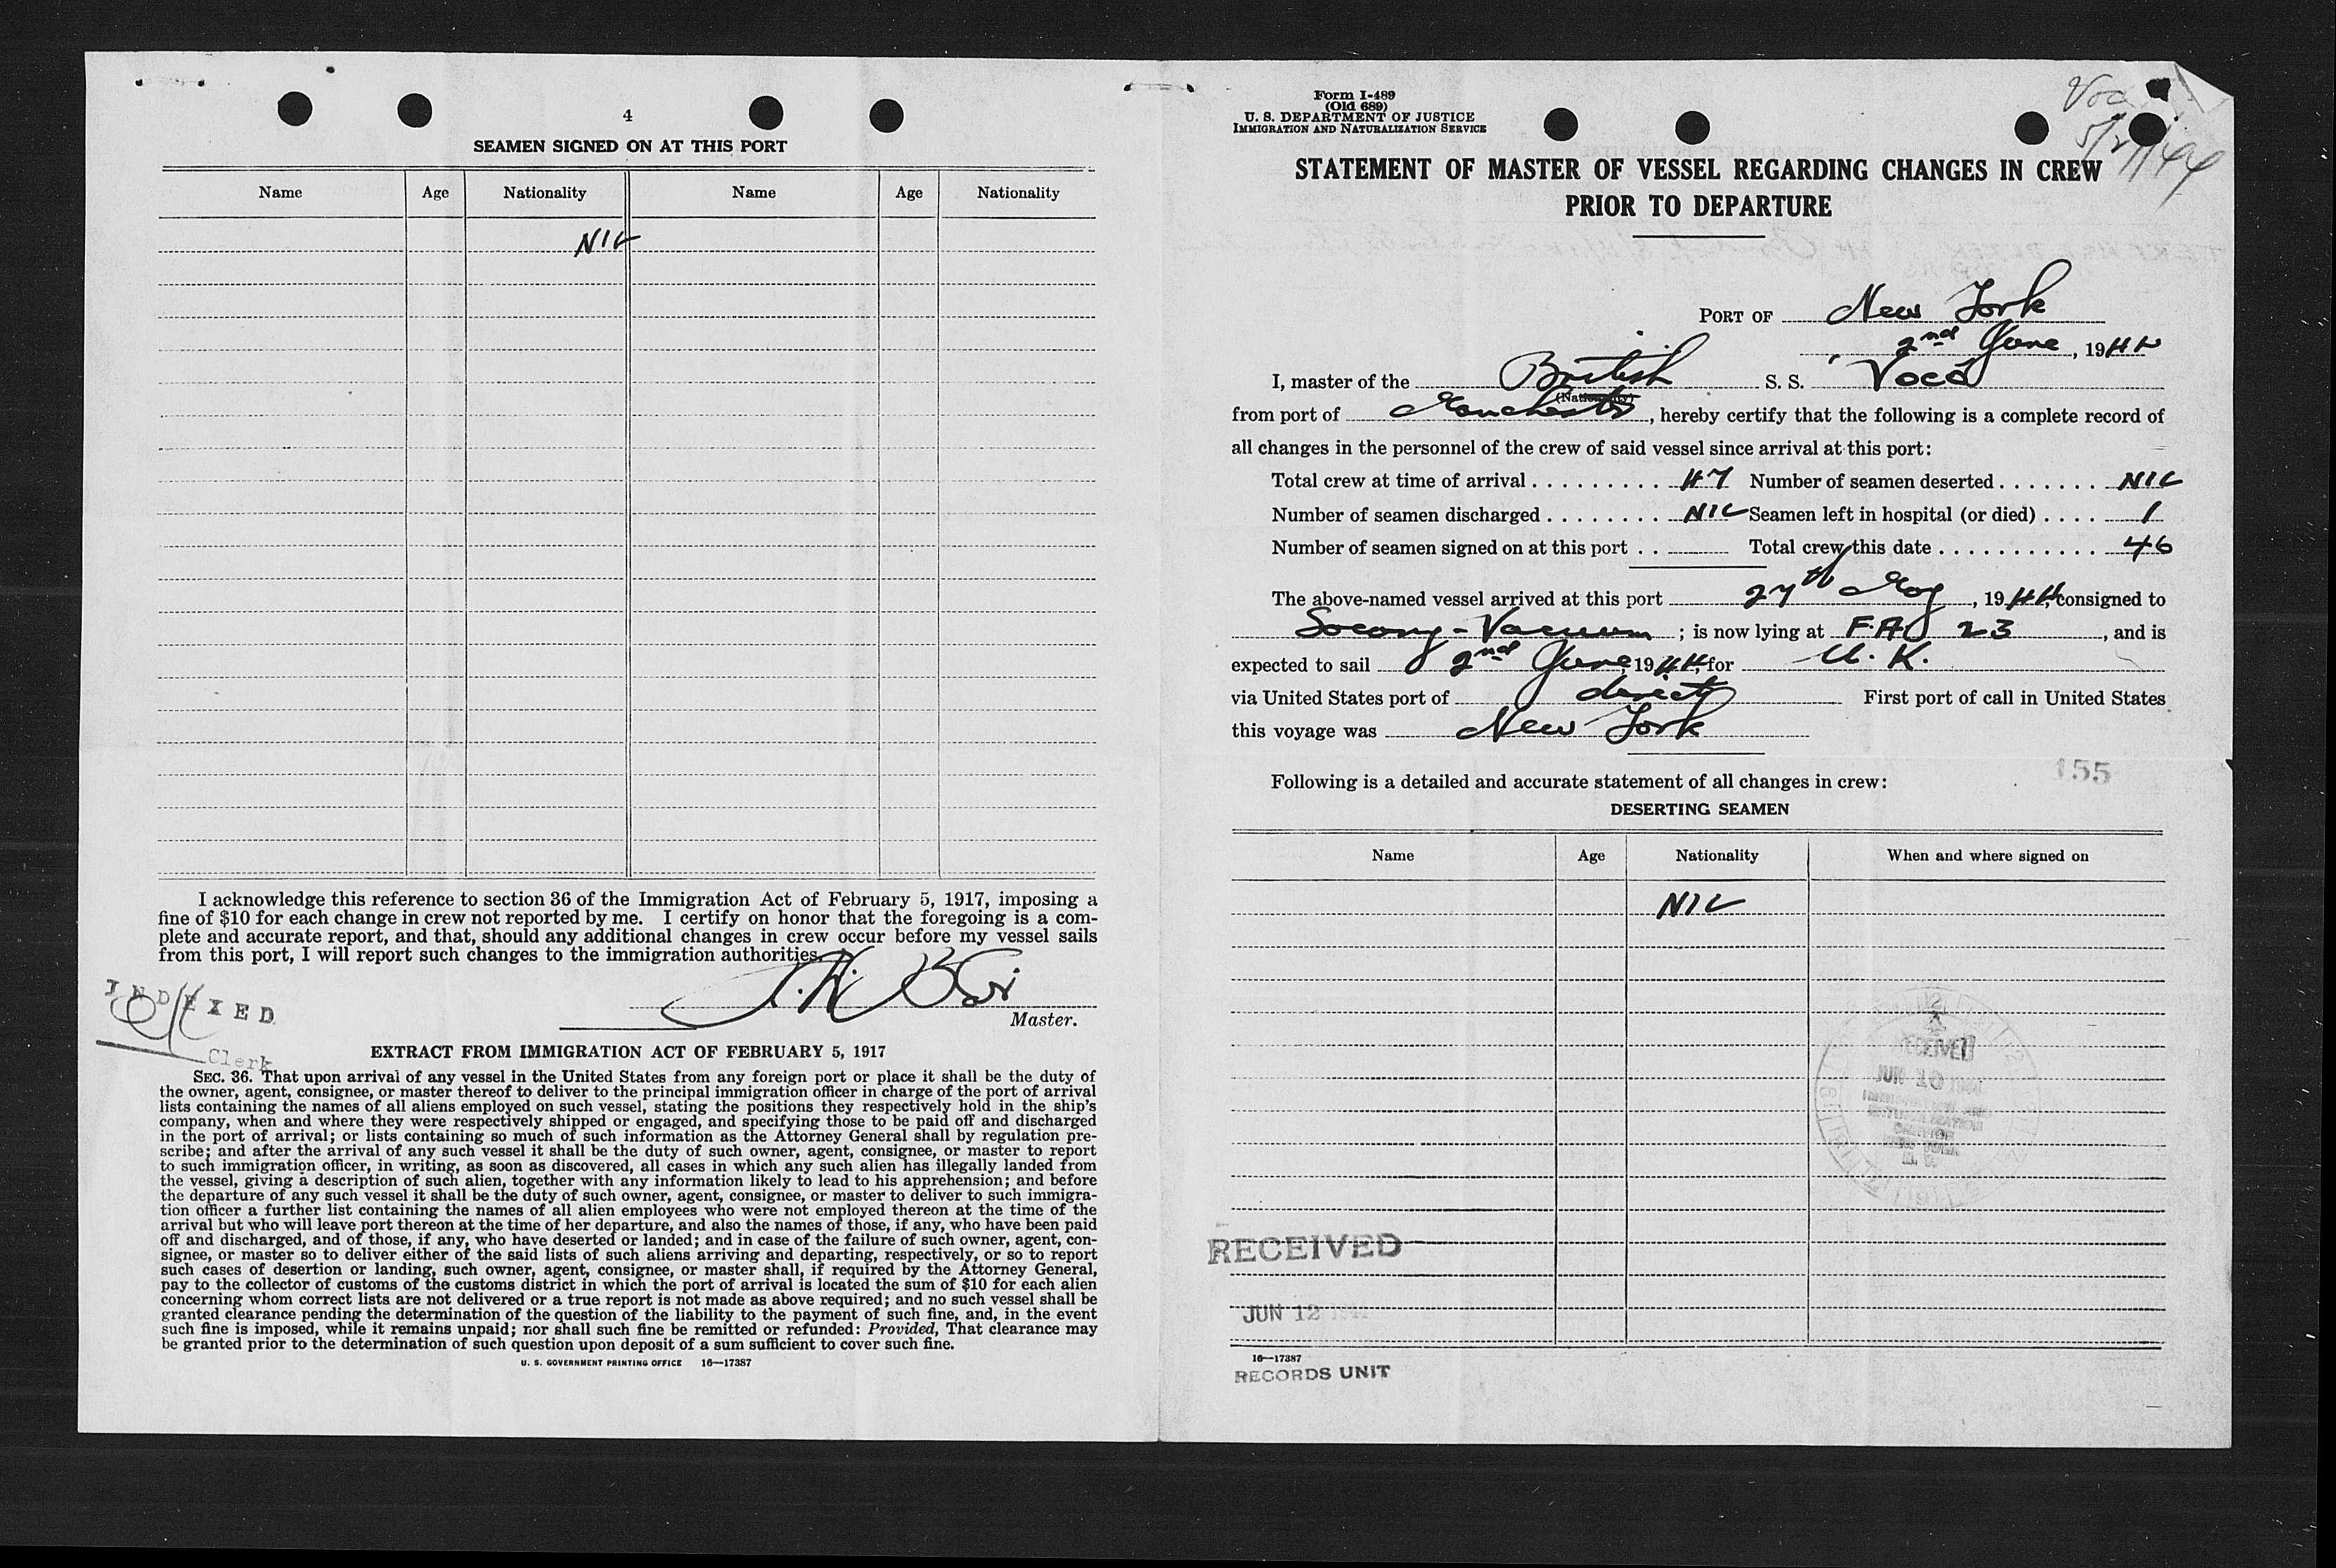 4
SEAMEN SIGNED ON AT THIS PORT
Name Age Nationality Name Age Nationality
NIL
I acknowledge this reference to section 36 of the Immigration Act of February 5, 1917, imposing a
fine of $10 for each change in crew not reported by me. I certify on honor that the foregoing is a com-
plete and accurate report, and that, should any additional changes in crew occur before my vessel sails
from this port, I will report such changes to the immigration authorities.
Master.
INDEXED
Clerk
EXTRACT FROM IMMIGRATION ACT OF FEBRUARY 5, 1917
SEC. 36. That upon arrival of any vessel in the United States from any foreign port or place it shall be the duty of
the owner, agent, consignee, or master thereof to deliver to the principal immigration officer in charge of the port of arrival
lists containing the names of all aliens employed on such vessel, stating the positions they respectively hold in the ship's
company, when and where they were respectively shipped or engaged, and specifying those to be paid off and discharged
in the port of arrival; or lists containing so much of such information as the Attorney General shall by regulation pre-
scribe; and after the arrival of any such vessel it shall be the duty of such owner, agent, consignee, or master to report
to such immigration officer, in writing, as soon as discovered, all cases in which any such alien has illegally landed from
the vessel, giving a description of such alien, together with any information likely to lead to his apprehension; and before
the departure of any such vessel it shall be the duty of such owner, agent, consignee, or master to deliver to such immigra-
tion officer a further list containing the names of all alien employees who were not employed thereon at the time of the
arrival but who will leave port thereon at the time of her departure, and also the names of those, if any, who have been paid
off and discharged, and of those, if any, who have deserted or landed; and in case of the failure of such owner, agent, con-
signee, or master so to deliver either of the said lists of such aliens arriving and departing, respectively, or so to report
such cases of desertion or landing, such owner, agent, consignee, or master shall, if required by the Attorney General,
pay to the collector of customs of the customs district in which the port of arrival is located the sum of $10 for each alien
concerning whom correct lists are not delivered or a true report is not made as above required; and no such vessel shall be
granted clearance pending the determination of the question of the liability to the payment of such fine, and, in the event
such fine is imposed, while it remains unpaid; nor shall such fine be remitted or refunded: Provided, That clearance may
be granted prior to the determination of such question upon deposit of a sum sufficient to cover such fine.
U. S. GOVERNMENT PRINTING OFFICE 16—17387
Form I-489
(Old 689)
U. S. DEPARTMENT OF JUSTICE
IMMIGRATION AND NATURALIZATION SERVICE
STATEMENT OF MASTER OF VESSEL REGARDING CHANGES IN CREW
PRIOR TO DEPARTURE
PORT OF New York
2nd June, 1944
I, master of the British S. S. Voco
(Nationality)
from port of Manchester, hereby certify that the following is a complete record of
all changes in the personnel of the crew of said vessel since arrival at this port:
Total crew at time of arrival 47 Number of seamen deserted NIL
Number of seamen discharged NIL Seamen left in hospital (or died) 1
Number of seamen signed on at this port Total crew this date 46
The above-named vessel arrived at this port 27th May, 1944, consigned to
Socony-Vacuum; is now lying at F.A. 23, and is
expected to sail 2nd June, 1944, for U.K.
via United States port of direct First port of call in United States
this voyage was New York
Following is a detailed and accurate statement of all changes in crew:
155
DESERTING SEAMEN
Name Age Nationality When and where signed on
NIL
RECEIVED
JUN 10 1944
IMMIGRATION AND
NATURALIZATION
SERVICE
NEW YORK
N. Y.
RECEIVED
JUN 12 1944
16—17387
RECORDS UNIT